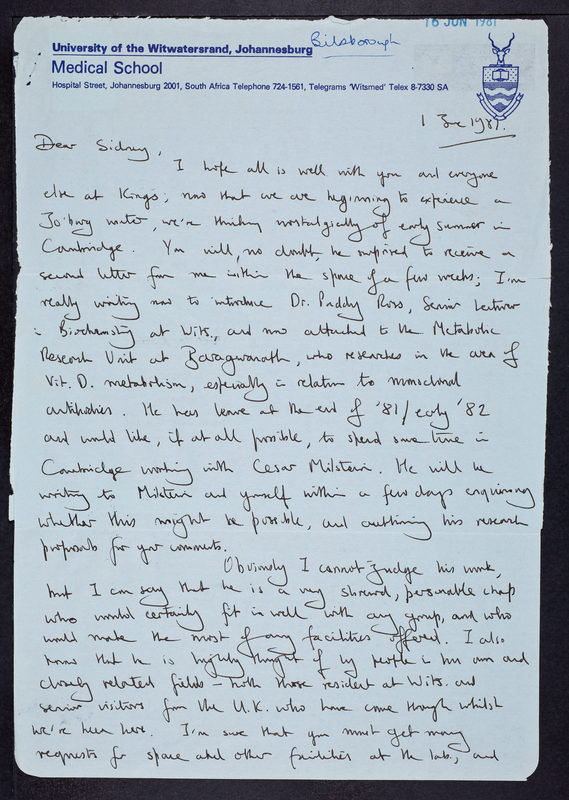 16 JUN 1981
Bilsborough
University of the Witwatersrand, Johannesburg
Medical School
Hospital Street, Johannesburg 2001, South Africa Telephone 724-1561, Telegrams 'Witsmed' Telex 8-7330 SA
1 June 1981.
Dear Sidney,
I hope all is well with you and everyone
else at King's; now that we are beginning to experience a
Jo'burg winter, we're thinking nostalgically of early summer in
Cambridge. You will, no doubt, be surprised to receive a
second letter from me within the space of a few weeks; I'm
really writing now to introduce Dr. Paddy Ross, Senior Lecturer
in Biochemistry at Wits., and now attached to the Metabolic
Research Unit at Baragwanath, who researches in the area of
Vit. D. metabolism, especially in relation to monoclonal
antibodies. He has leave at the end of '81/early '82
and would like, if at all possible, to spend some time in
Cambridge working with Cesar Milstein. He will be
writing to Milstein and yourself within a few days enquiring
whether this might be possible, and outlining his research
proposals for your comments.
Obviously I cannot judge his work,
but I can say that he is a very shrewd, personable chap
who would certainly fit in well with any group, and who
would make the most of any facilities offered. I also
know that he is highly thought of by people in his own and
closely related fields – both those resident at Wits. and
senior visitors from the U.K. who have come through whilst
we've been here. I'm sure that you must get many
requests for space and other facilities at the lab., and